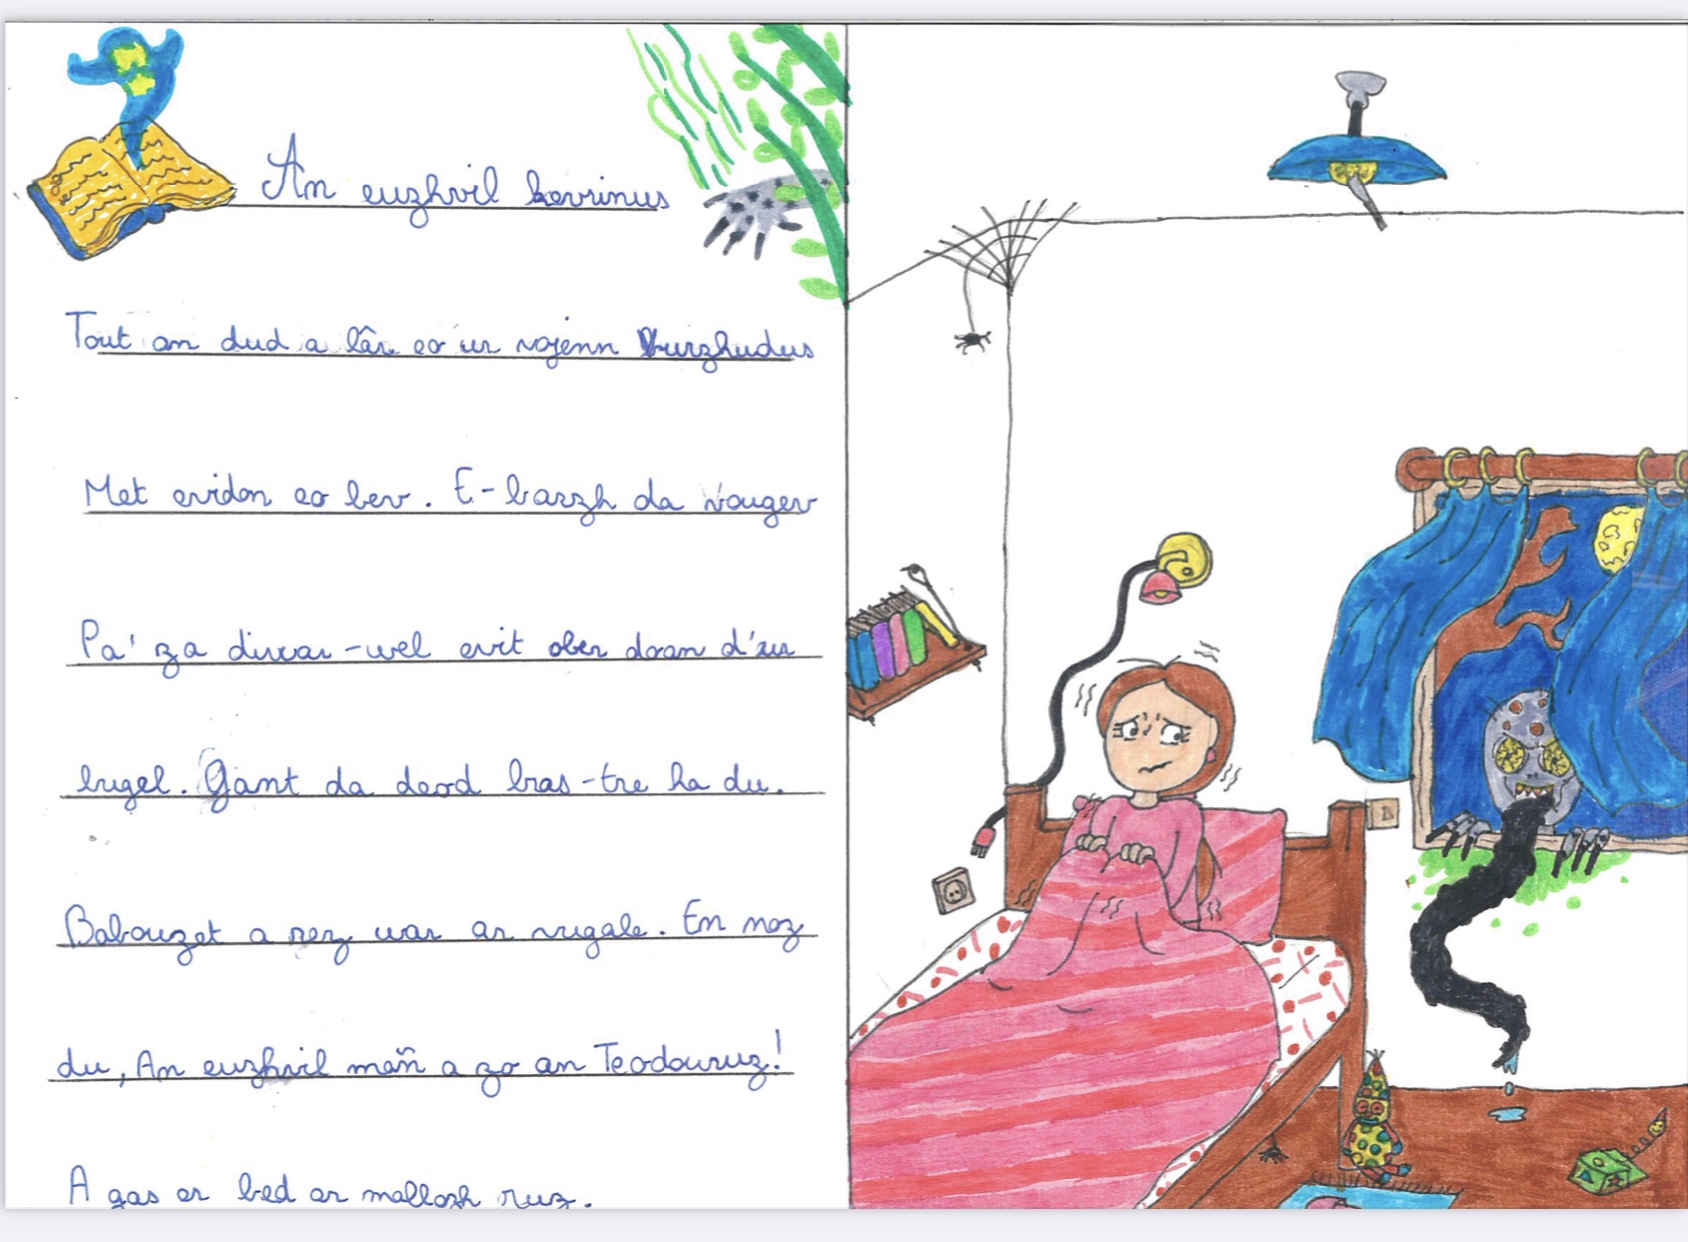 An euzhvil kevrinus
Tout an dud a lâr eo ur vojenn burzhudus
Met evidon eo bev. E-barzh da vougev
Pa' za diwar-wel evit ober doan d'zur
bugel. Gant da deod bras-tre ha du.
Babouzet a rez war ar vugale. En noz
du, An euzhvil mañ a zo an Teodouruz!
A gas ar bed ar mallozh ruz.